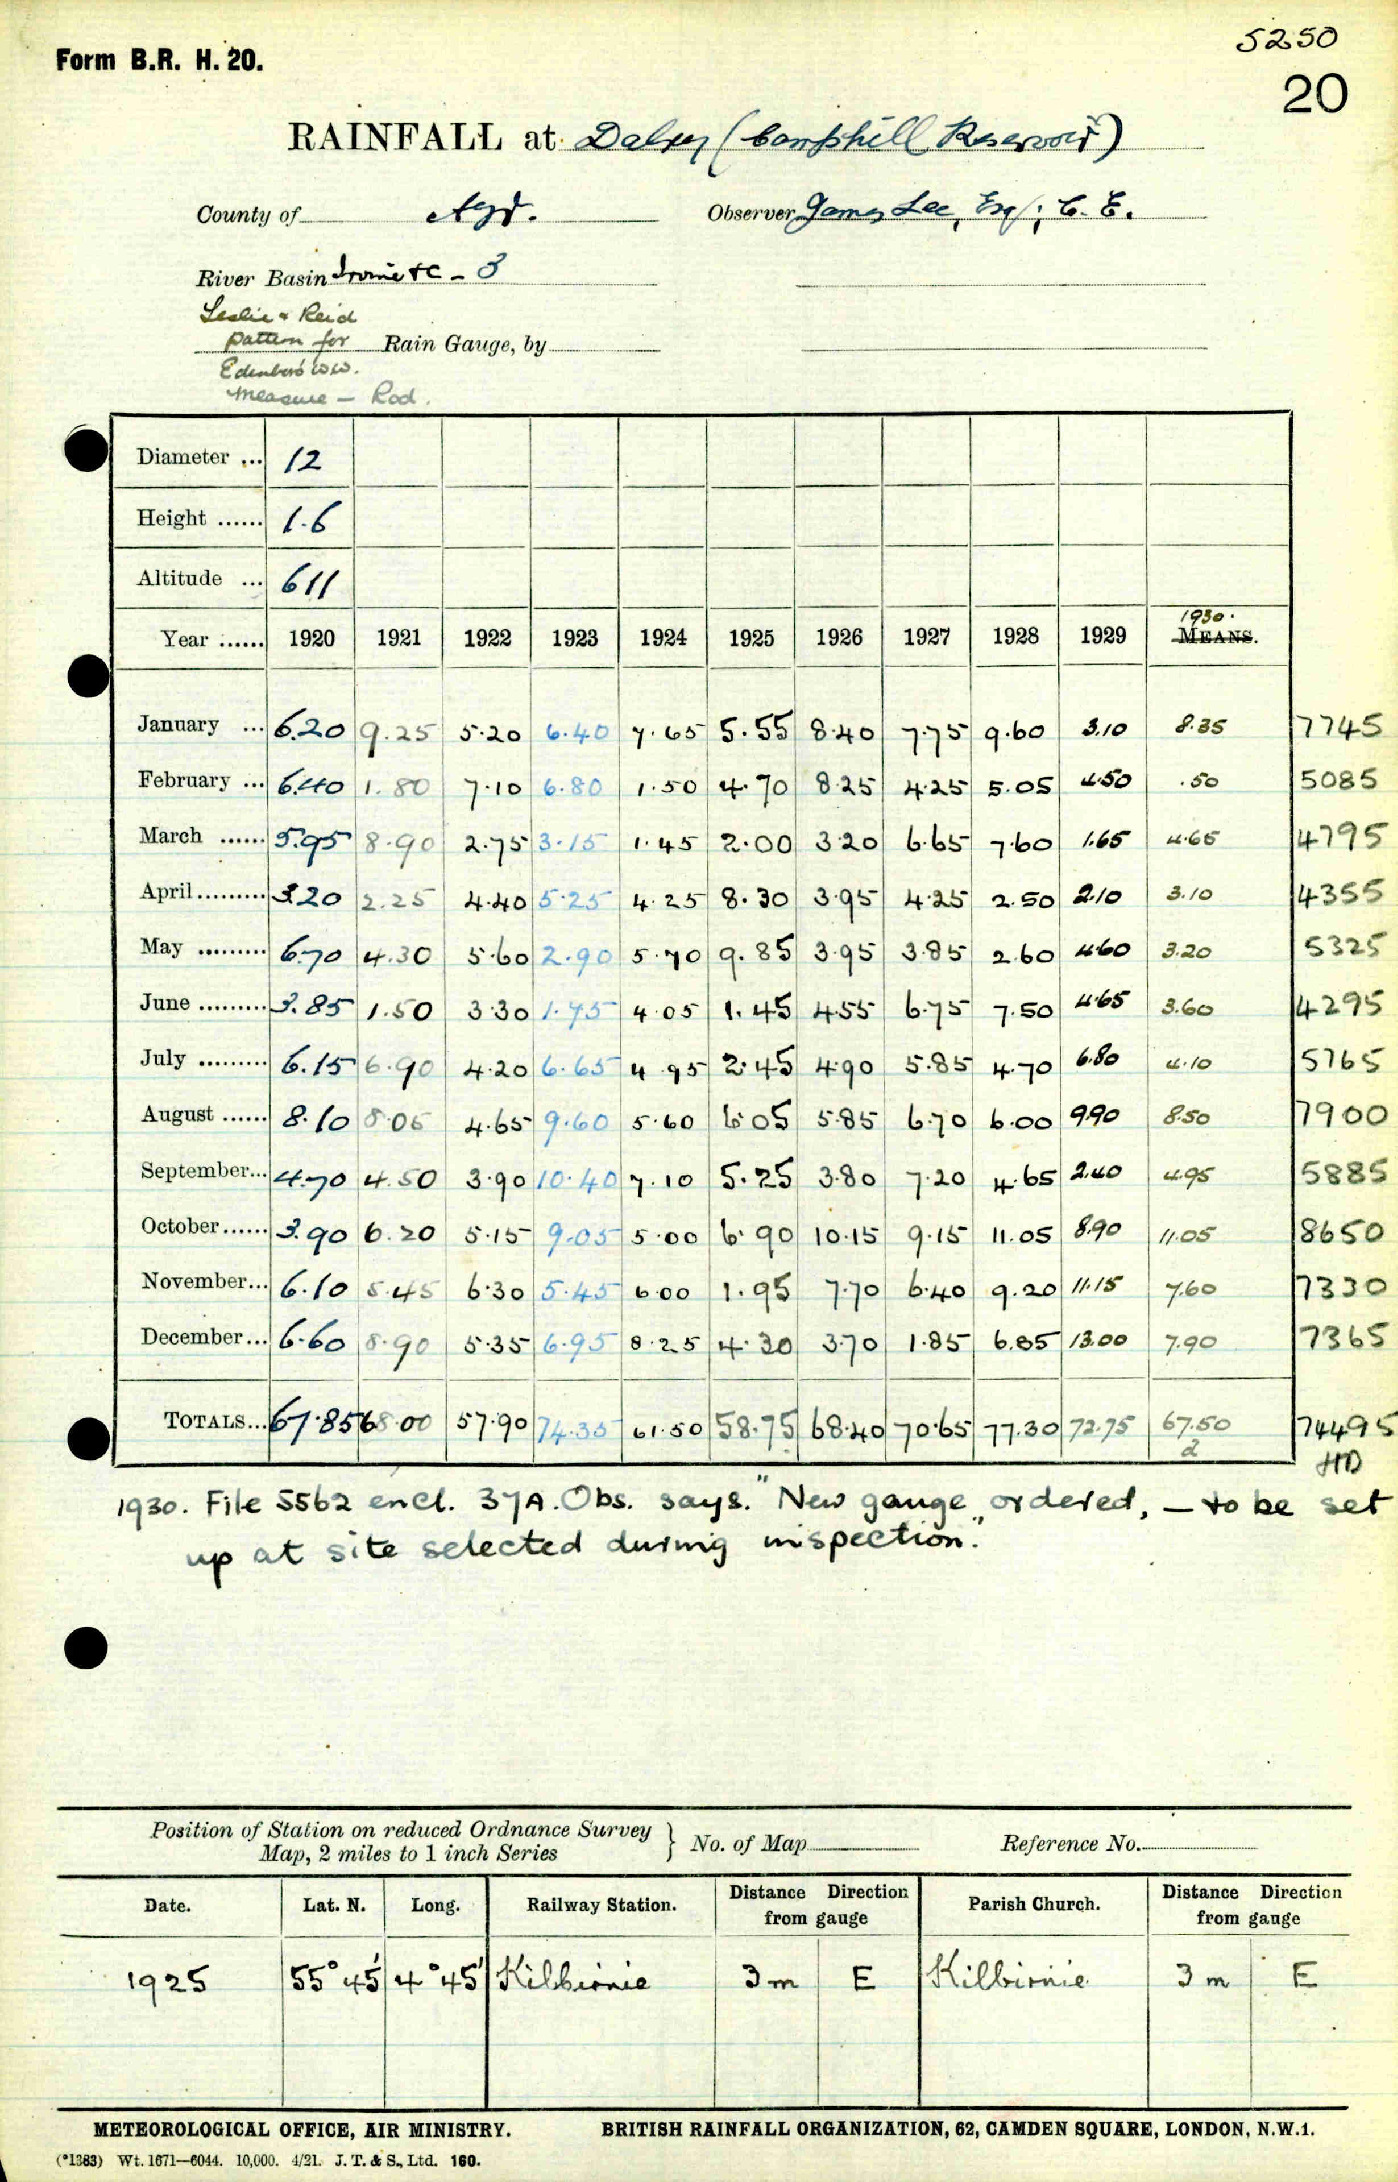 5250
Form B.R. H. 20.
20
RAINFALL at Dalry (Camphill Reservoir)
County of Ayr. Observer James Lee, Esq; C. E.
River Basin Irvine &c - 3
Leslie & Reid
pattern for Rain Gauge, by
Edenboro' W.W.
Measure - Rod.
Diameter ... 12
Height ...... 1.6
Altitude ... 611
1930.
Year ...... 1920 1921 1922 1923 1924 1925 1926 1927 1928 1929 MEANS.
January ... 6.20 9.25 5.20 6.40 7.65 5.55 8.40 7.75 9.60 3.10 8.35 7745
February ... 6.40 1.80 7.10 6.80 1.50 4.70 8.25 4.25 5.05 4.50 .50 5085
March ...... 5.95 8.90 2.75 3.15 1.45 2.00 3.20 6.65 7.60 1.65 4.65 4795
April ......... 3.20 2.25 4.40 5.25 4.25 8.30 3.95 4.25 2.50 2.10 3.10 4355
May ......... 6.70 4.30 5.60 2.90 5.70 9.85 3.95 3.85 2.60 4.60 3.20 5325
June ......... 3.85 1.50 3.30 1.75 4.05 1.45 4.55 6.75 7.50 4.65 3.60 4295
July ......... 6.15 6.90 4.20 6.65 4.95 2.45 4.90 5.85 4.70 6.80 4.10 5765
August ...... 8.10 8.05 4.65 9.60 5.60 6.05 5.85 6.70 6.00 9.90 8.50 7900
September... 4.70 4.50 3.90 10.40 7.10 5.25 3.80 7.20 4.65 2.40 4.95 5885
October...... 3.90 6.20 5.15 9.05 5.00 6.90 10.15 9.15 11.05 8.90 11.05 8650
November... 6.10 5.45 6.30 5.45 6.00 1.95 7.70 6.40 9.20 11.15 7.60 7330
December... 6.60 8.90 5.35 6.95 8.25 4.30 3.70 1.85 6.85 13.00 7.90 7365
TOTALS... 67.85 68.00 57.90 74.35 61.50 58.75 68.40 70.65 77.30 72.75 67.50 74495
2 HD
1930. File 5562 encl. 37A. Obs. says. "New gauge ordered, - to be set
up at site selected during inspection."
Position of Station on reduced Ordnance Survey
Map, 2 miles to 1 inch Series } No. of Map Reference No.
Date. Lat. N. Long. Railway Station. Distance Direction from gauge Parish Church. Distance Direction from gauge
1925 55° 45' 4° 45' Kilbirnie 3 m E Kilbirnie 3 m E
METEOROLOGICAL OFFICE, AIR MINISTRY. BRITISH RAINFALL ORGANIZATION, 62, CAMDEN SQUARE, LONDON, N.W.1.
(*1383) Wt. 1671—6044. 10,000. 4/21. J. T. & S., Ltd. 160.